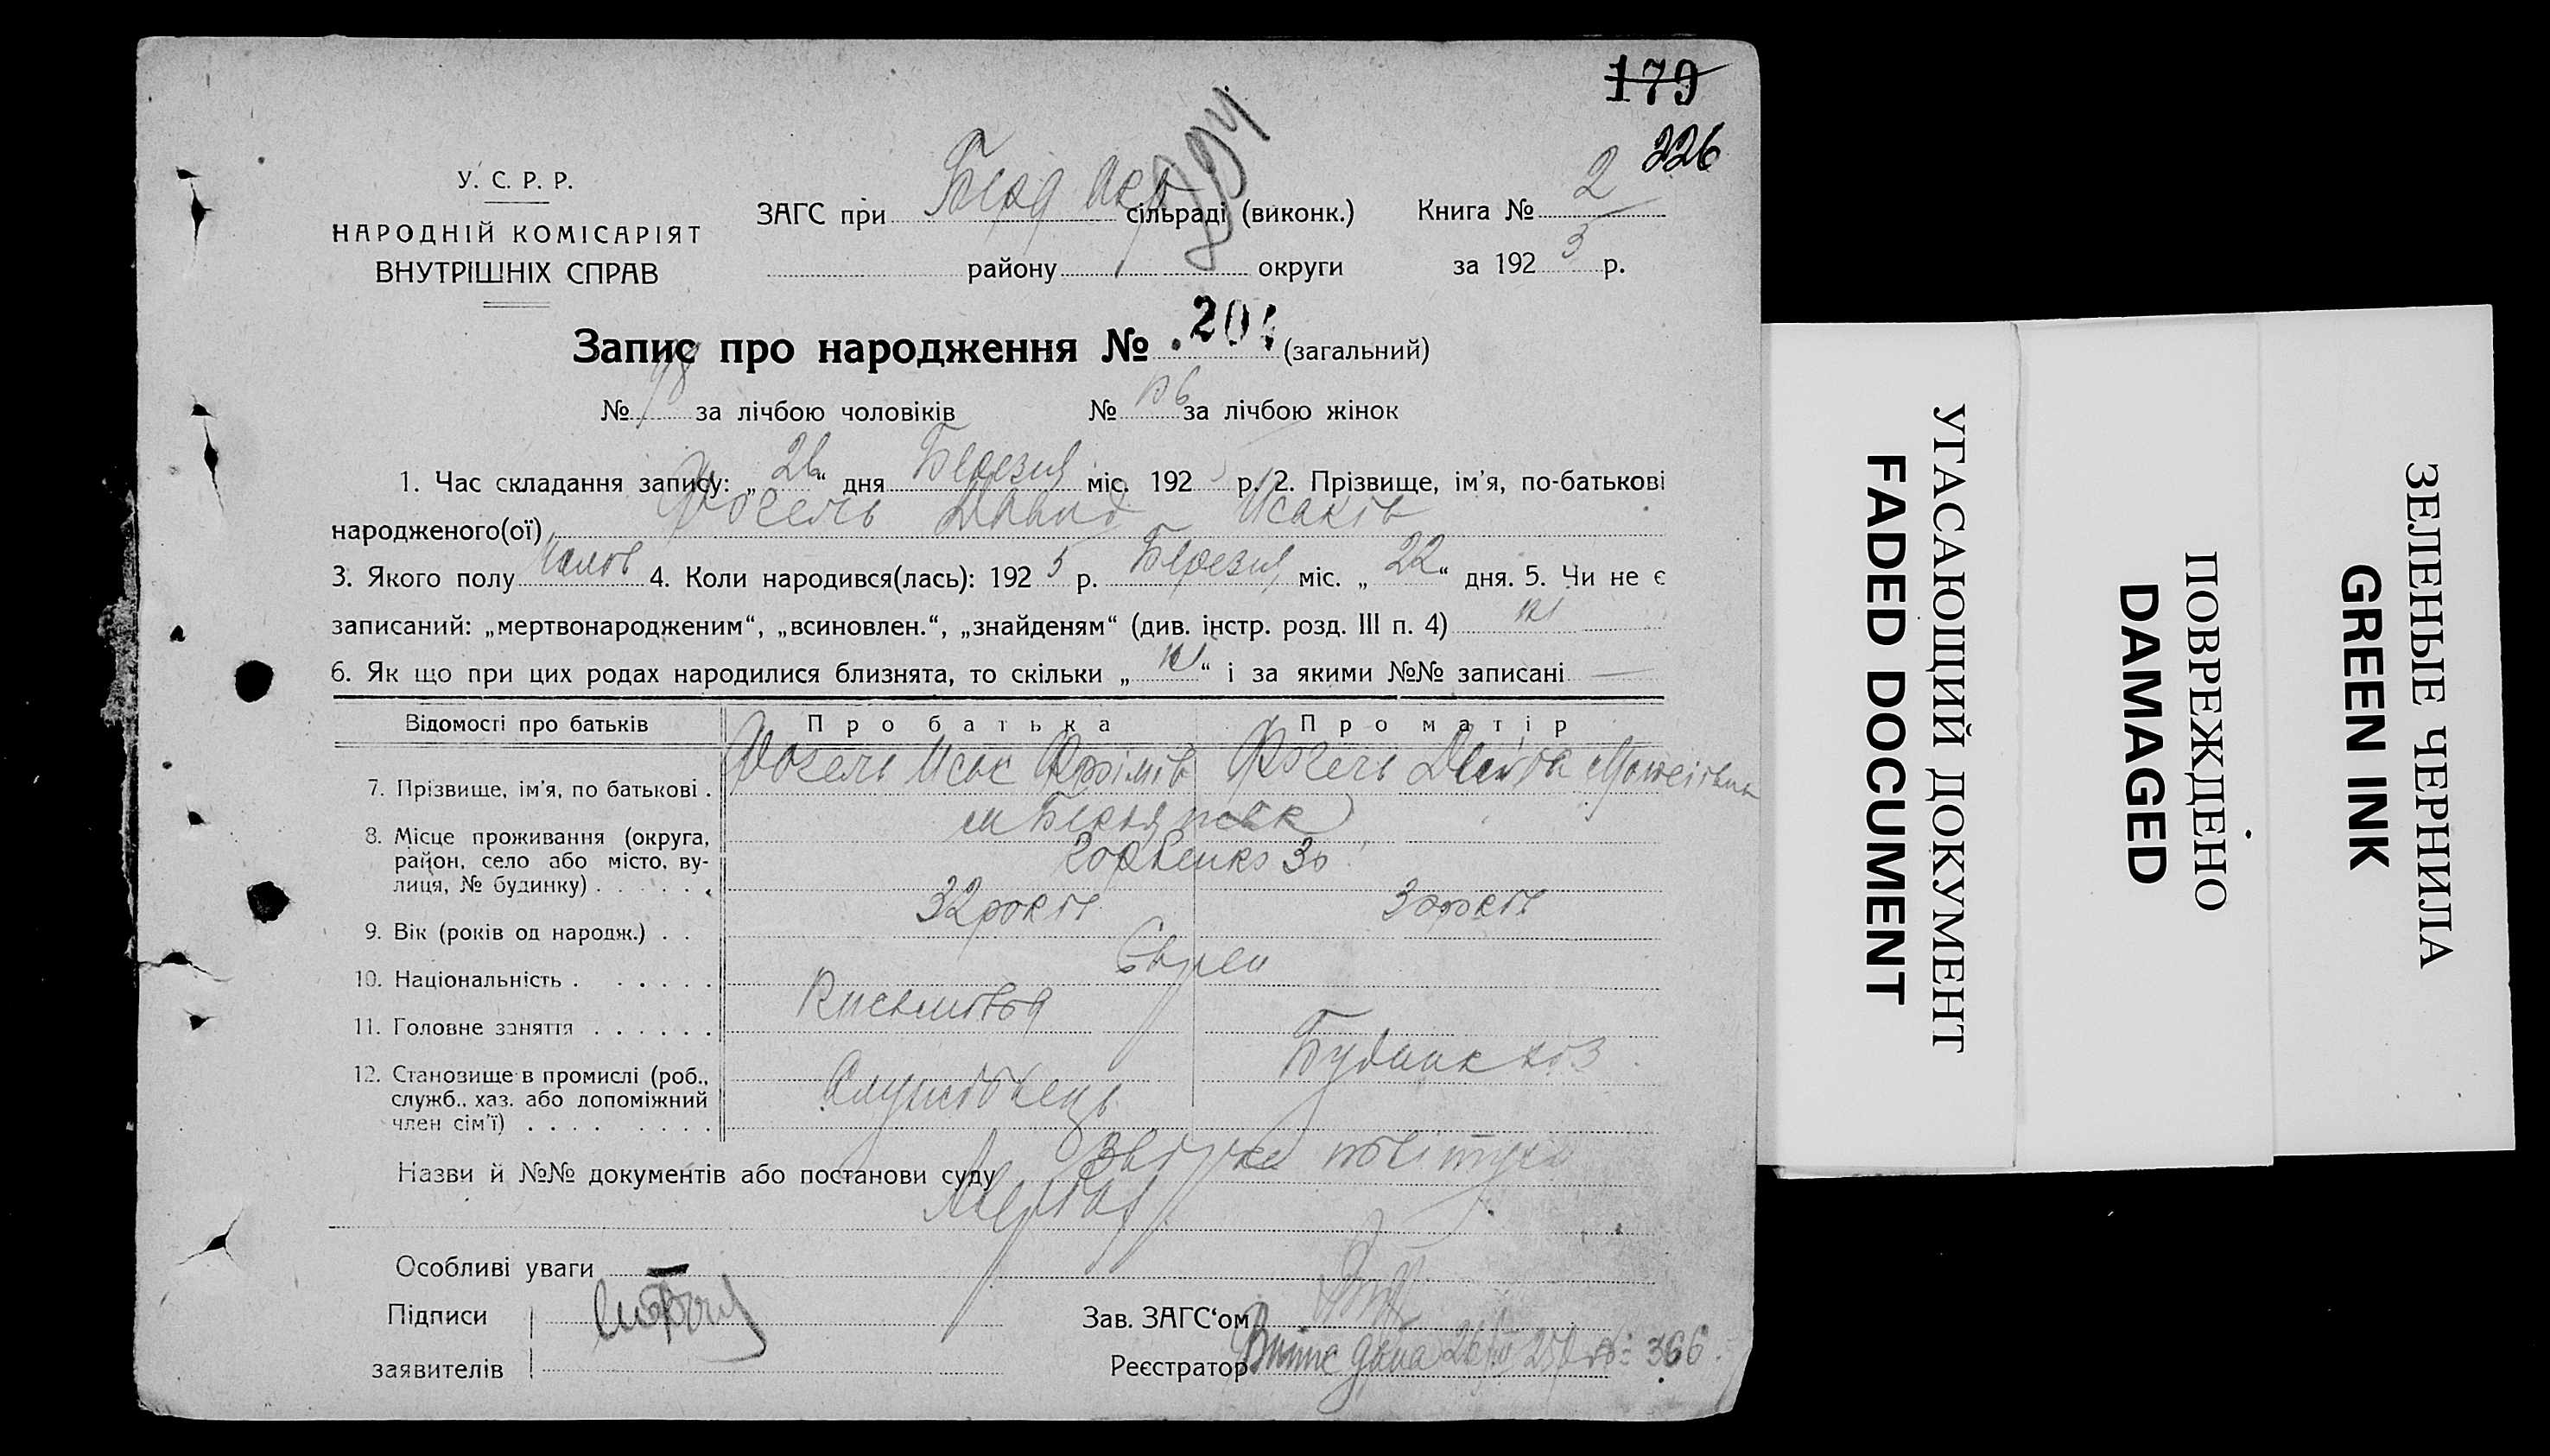 179
226
У. С. Р. Р.
НАРОДНІЙ КОМІСАРІЯТ
ВНУТРІШНІХ СПРАВ
ЗАГС при сільраді (виконк.) Книга № 2
району округи за 192 5 р.
Запис про народження № 20 (загальний)
№ 98 за лічбою чоловіків № за лічбою жінок
1. Час складання запису: „ 26 “ дня Березня міс. 192 р. 2. Прізвище, ім'я, по-батькові
народженого(ої) Фогель Давид Исаків
3. Якого полу 4. Коли народився(лась): 192 5 р. Березня міс. „ 22 “ дня. 5. Чи не є
записаний: „мертвонародженим“, „всиновлен.“, „знайденям“ (див. інстр. розд. III п. 4) ні
6. Як що при цих родах народилися близнята, то скільки „ ні “ і за якими №№ записані —
Відомості про батьків Про батька Про матір
7. Прізвище, ім'я, по батькові . Фогель Исак Фогель
8. Місце проживання (округа,
район, село або місто, ву-
лиця, № будинку) . . . . . . Горбенко 30
9. Вік (років од народж.) . . 32 років 30 років
10. Національність . . . . . . Євреи
11. Головне заняття . . . . . .
12. Становище в промислі (роб.,
служб., хаз. або допоміжний
член сім'ї) . . . . . . . . Службовець
Назви й №№ документів або постанови суду
Особливі уваги
Підписи Зав. ЗАГС'ом
заявителів Реєстратор
Випис дана 366
УГАСАЮЩИЙ ДОКУМЕНТ
FADED DOCUMENT
ПОВРЕЖДЕНО
DAMAGED
ЗЕЛЕНЫЕ ЧЕРНИЛА
GREEN INK